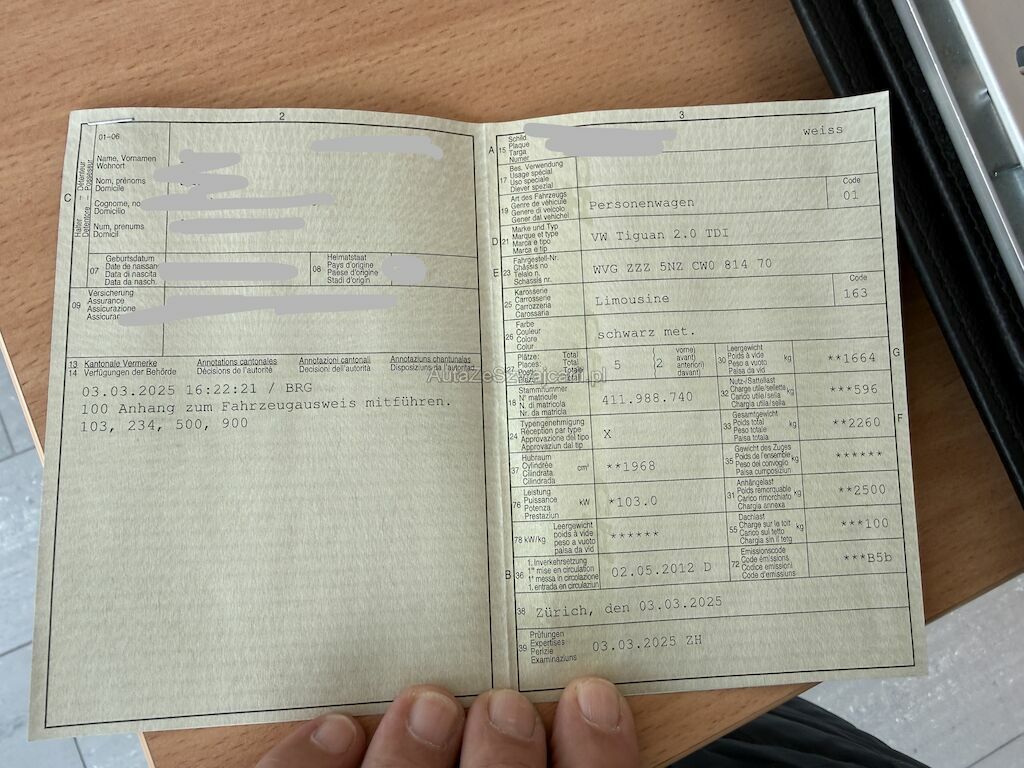 2
01-06
C
Halter – Détenteur
Detentore – Possessur
Name, Vornamen
Wohnort
Nom, prénoms
Domicile
Cognome, no
Domicilio
Num, prenums
Domicil
07
Geburtsdatum
Date de naissan
Data di nascita
Data da nasch.
08
Heimatstaat
Pays d'origine
Paese d'origine
Stadi d'origin
09
Versicherung
Assurance
Assicurazione
Assicuran
13 Kantonale Vermerke Annotations cantonales Annotazioni cantonali Annotaziuns chantunalas
14 Verfügungen der Behörde Décisions de l'autorité Decisioni dell'autorità Disposiziuns da l'autoritad
03.03.2025 16:22:21 / BRG
100 Anhang zum Fahrzeugausweis mitführen.
103, 234, 500, 900
3
A 15
Schild
Plaque
Targa
Numer
weiss
17
Bes. Verwendung
Usage spécial
Uso speciale
Diever spezial
19
Art des Fahrzeugs
Genre de véhicule
Genere di veicolo
Gener dal vehichel
Personenwagen
Code
01
D 21
Marke und Typ
Marque et type
Marca e tipo
Marca e tip
VW Tiguan 2.0 TDI
E 23
Fahrgestell-Nr.
Châssis no
Telaio n.
Schassis nr.
WVG ZZZ 5NZ CW0 814 70
25
Karosserie
Carrosserie
Carrozzeria
Carossaria
Limousine
Code
163
26
Farbe
Couleur
Colore
Colur
schwarz met.
27
Plätze: Total
Places: Total
Posti: Totale
Plazs: Total
5
(2
vorne)
avant)
anteriori)
davant)
30
Leergewicht
Poids à vide
Peso a vuoto
Paisa da vid
kg
**1664
G
18
Stammnummer
N° matricule
N. di matricola
Nr. da matricla
411.988.740
32
Nutz-/Sattellast
Charge utile/sellette
Carico utile/sella
Chargia utila/sella
kg
***596
24
Typengenehmigung
Réception par type
Approvazione del tipo
Approvaziun dal tip
X
33
Gesamtgewicht
Poids total
Peso totale
Paisa totala
kg
**2260
F
37
Hubraum
Cylindrée
Cilindrata
Cilindrada
cm³
**1968
35
Gewicht des Zuges
Poids de l'ensemble
Peso del convoglio
Paisa cumposiziun
kg
******
76
Leistung
Puissance
Potenza
Prestaziun
kW
*103.0
31
Anhängelast
Poids remorquable
Carico rimorchiato
Chargia annexa
kg
**2500
78 kW/kg
Leergewicht
poids à vide
peso a vuoto
paisa da vid
******
55
Dachlast
Charge sur le toit
Carico sul tetto
Chargia sin il tetg
kg
***100
B 36
1. Inverkehrsetzung
1re mise en circulation
1a messa in circolazione
1. entrada en circulaziun
02.05.2012 D
72
Emissionscode
Code émissions
Codice emissioni
Code d'emissiuns
***B5b
38
Zürich, den 03.03.2025
39
Prüfungen
Expertises
Perizie
Examinaziuns
03.03.2025 ZH
AutazeSzwajcarii.pl